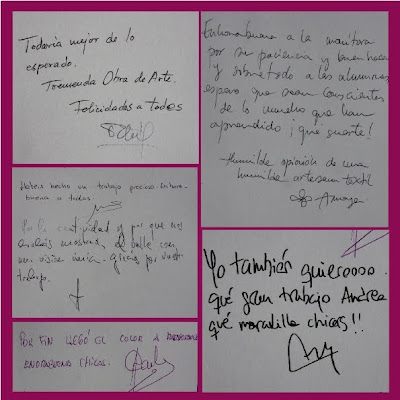 Todavía mejor de lo
esperado.
Tremenda Obra de Arte.
Felicidades a todos
Enhorabuena a la monitora
por su paciencia y buen hacer
y sobre todo a las alumnas
espero que sean conscientes
de lo mucho que han
aprendido ¡qué suerte!
Humilde opinión de una
humilde artesana textil
Habéis hecho un trabajo precioso. Enhora-
buena a todas.
y por que nos
una visión única. Gracias por vuestro
trabajo.
Yo también quierooooo
qué gran trabajo Andrea
qué moradilla chicas!!
POR FIN LLEGÓ EL COLOR A
ENORABUENA CHICAS.